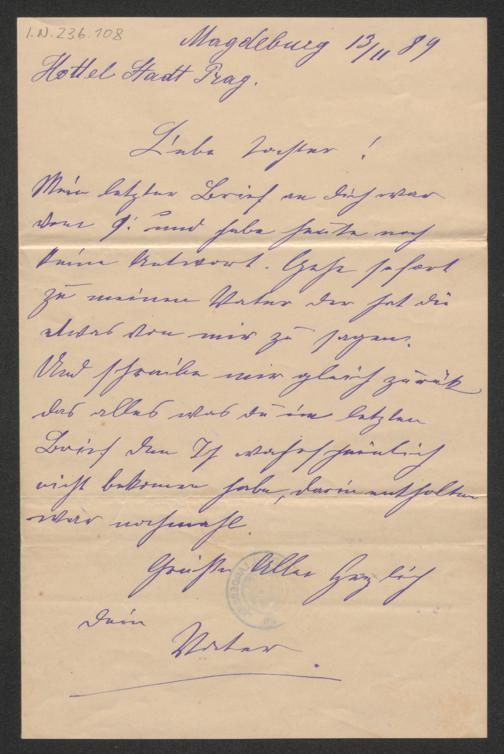 I.N. 236.108
Magdeburg 13/11 89
Hottel Stadt Prag.
Liebe Tochter!
Mein letzter Brief an dich war
vom 9. und habe heute noch
keine Antwort. Gehe sofort
zu meinen Vater der hat dir
etwas von mir zu sagen.
Und schreibe mir gleich zurük
das alles was du im letzten
Brief den Ich wahrscheinlich
nicht bekomen habe, darin enthalten
war nochmahl.
Grüße Alle Herzlich
Dein
Vater